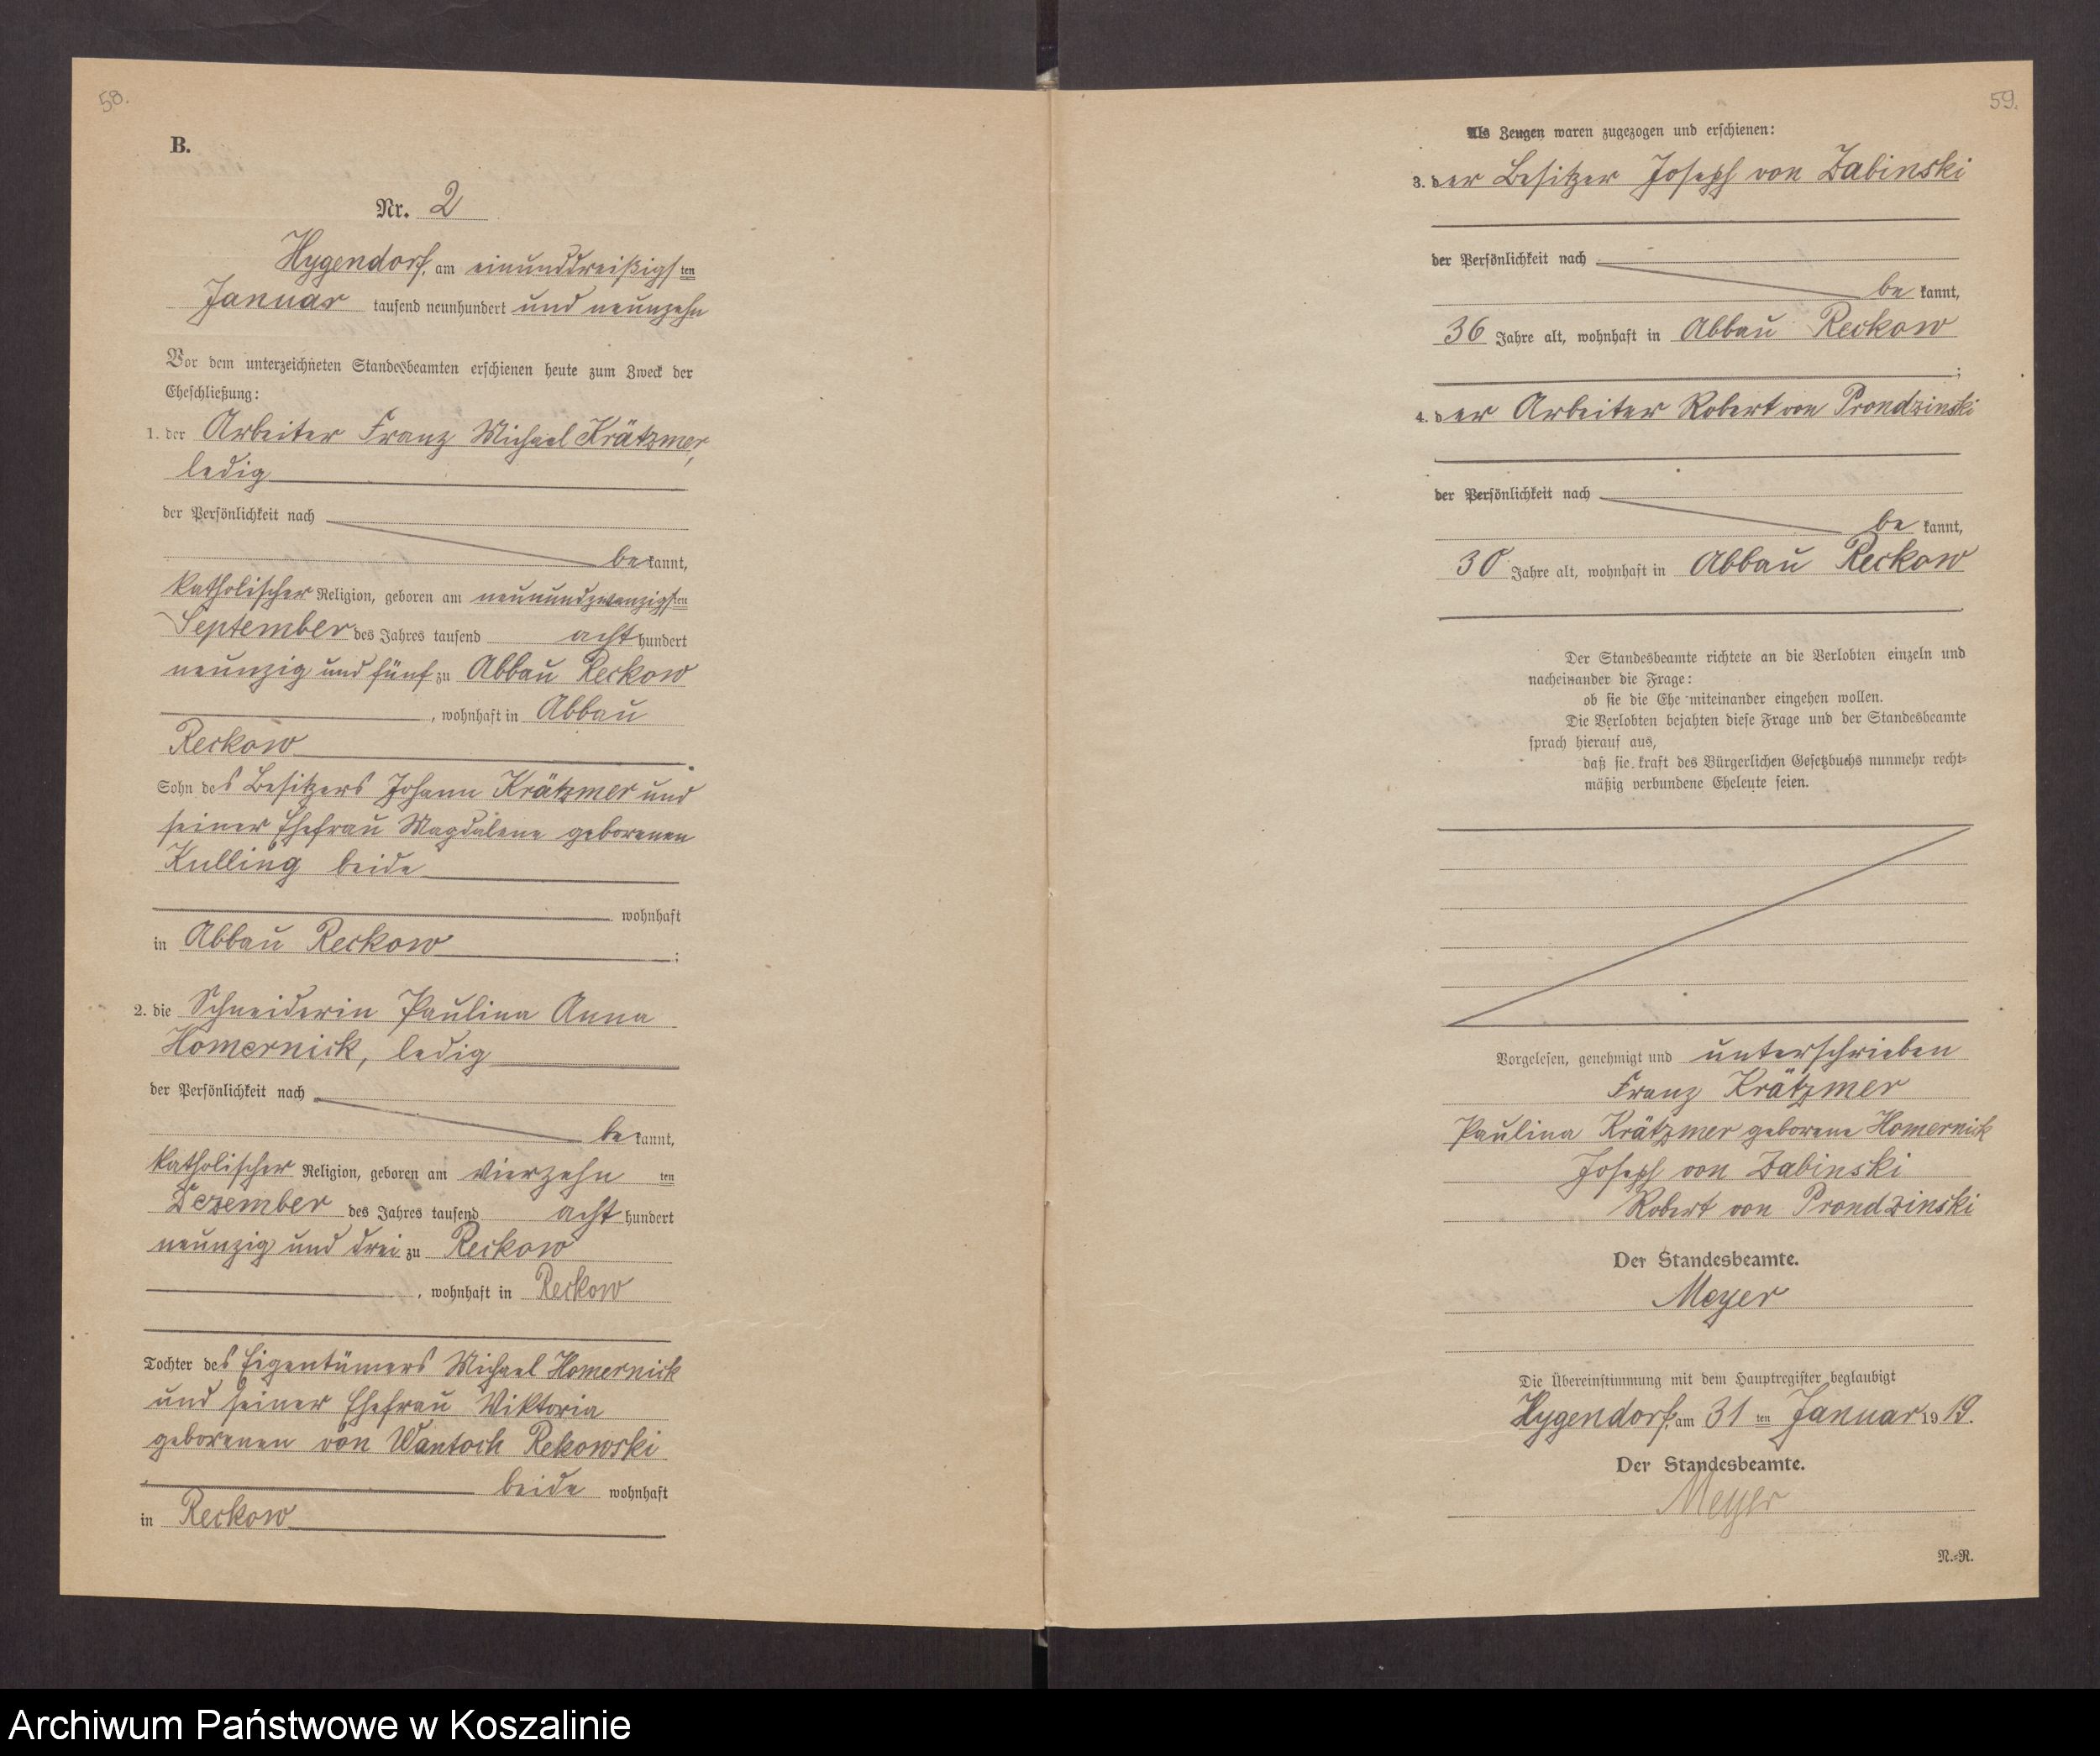 58.
B.
Nr. 2
Hygendorf, am einunddreißigsten
Januar tausend neunhundert und neunzehn
Vor dem unterzeichneten Standesbeamten erschienen heute zum Zweck der
Eheschließung:
1. der Arbeiter Franz Michael Krätzmer,
ledig
der Persönlichkeit nach
bekannt,
katholischer Religion, geboren am neunundzwanzigsten
September des Jahres tausend acht hundert
neunzig und fünf zu Abbau Reckow
, wohnhaft in Abbau
Reckow
Sohn des Besitzers Johann Krätzmer und
seiner Ehefrau Magdalene geborenen
Kulling beide
wohnhaft
in Abbau Reckow ;
2. die Schneiderin Paulina Anna
Homernick, ledig
der Persönlichkeit nach
bekannt,
katholischer Religion, geboren am vierzehn ten
Dezember des Jahres tausend acht hundert
neunzig und drei zu Reckow
, wohnhaft in Reckow
Tochter des Eigentümers Michael Homernick
und seiner Ehefrau Viktoria
geborenen von Wantoch Rekowski
beide wohnhaft
in Reckow
59.
Als Zeugen waren zugezogen und erschienen:
3. der Besitzer Joseph von Zabinski
der Persönlichkeit nach
be kannt,
36 Jahre alt, wohnhaft in Abbau Reckow
;
4. der Arbeiter Robert von Prondzinski
der Persönlichkeit nach
be kannt,
30 Jahre alt, wohnhaft in Abbau Reckow
Der Standesbeamte richtete an die Verlobten einzeln und
nacheinander die Frage:
ob sie die Ehe miteinander eingehen wollen.
Die Verlobten bejahten diese Frage und der Standesbeamte
sprach hierauf aus,
daß sie kraft des Bürgerlichen Gesetzbuchs nunmehr recht-
mäßig verbundene Eheleute seien.
Vorgelesen, genehmigt und unterschrieben
Franz Krätzmer
Paulina Krätzmer geborene Homernick
Joseph von Zabinski
Robert von Prondzinski
Der Standesbeamte.
Meyer
Die Übereinstimmung mit dem Hauptregister beglaubigt
Hygendorf, am 31 ten Januar 1919.
Der Standesbeamte.
Meyer
N.-R.
Archiwum Państwowe w Koszalinie